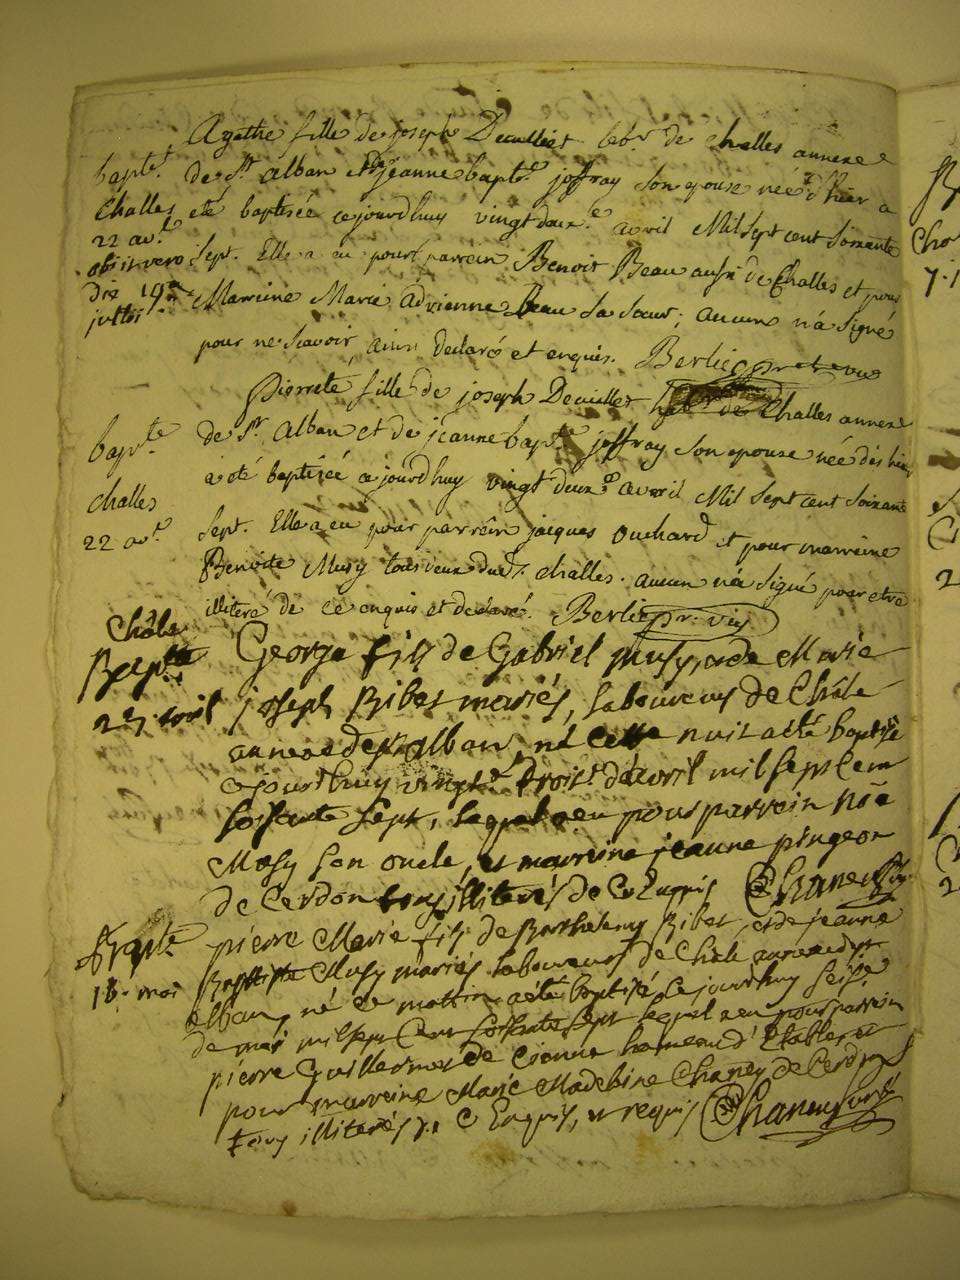 Agathe fille de joseph Decuillet lab.r de challes annexe
bapt.t de St alban et de jeanne bapt.e joffray son epouse née d'hier a
Challes eté baptisée cejourd'huy vingt deux.e avril Mil sept cent soixante
22 av.l
obiit vero sept. Elle a eu pour parrein Benoit Beau aussi de Challes et pour
die 19.a Marreine Marie adrienne Beau sa soeur; aucun n'a signé
pour ne sçavoir, ainsi declaré et enquis. Berlie pr et vic
Pierrete fille de joseph Decuillet lab.r de Challes annexe
bapt.te de St. alban et de jeanne bapt.e joffray son epouse née dés hier
a eté baptisée ajourd'huy vingt deux.e avril Mil sept cent soixante
challes
22 av.l sept. Elle a eu pour parrein jacques ouchard et pour marreine
Benoite Musy tous deux dud.t challes. aucun n'a signé pour etre
illiteré de ce enquis et declaré. Berlie pr. vic
Châle
Bapte George fils de Gabriel musy, et de Marie
23 avril joseph Ribet mariés, laboureurs de Châle
annexe de st alban, né cette nuit a été baptisé
cejourdhuy vingt troise d'avril mil sept cent
soisante sept, lequel a eu pour parrein
Musy son oncle, et marreine jeanne pingeon
de Cerdon tous illiterés de ce Enquis Chaney
Bapte pierre Marie fils de Barthelemy Ribet, et de jeanne
mai Baptiste Musy mariés laboureurs de Chale annexe de st
alban, né ce mattin a été baptisé ce jourdhuy seize
de mai mil sept cent soisante sept lequel a eu pour parrein
pierre Guillermet de hameau d'Etables et
pour marreine Marie Madeleine Chaney de Cerdon
tous illiterés de ce Enquis, et requis Chaney